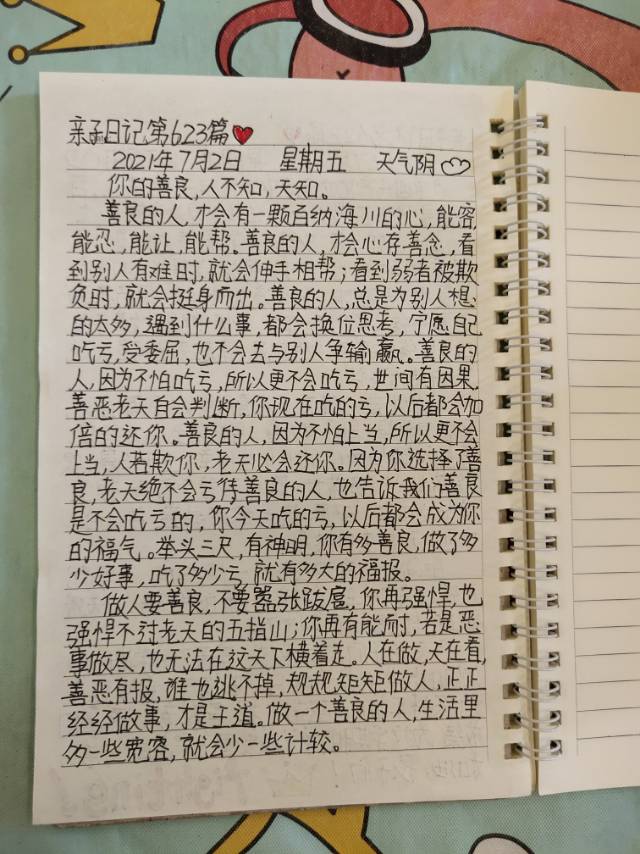 亲子日记第623篇
2021年7月2日 星期五 天气阴
你的善良,人不知,天知。
善良的人,才会有一颗百纳海川的心,能容,
能忍,能让,能帮。善良的人,才会心存善念,看
到别人有难时,就会伸手相帮;看到弱者被欺
负时,就会挺身而出。善良的人,总是为别人想
的太多,遇到什么事,都会换位思考,宁愿自己
吃亏,受委屈,也不会去与别人争输赢。善良的
人,因为不怕吃亏,所以更不会吃亏,世间有因果,
善恶老天自会判断,你现在吃的亏,以后都会加
倍的还你。善良的人,因为不怕上当,所以更不会
上当,人若欺你,老天必会还你。因为你选择了善
良,老天绝不会亏待善良的人,也告诉我们善良
是不会吃亏的,你今天吃的亏,以后都会成为你
的福气。举头三尺,有神明,你有多善良,做了多
少好事,吃了多少亏,就有多大的福报。
做人要善良,不要嚣张跋扈,你再强悍,也
强悍不过老天的五指山;你再有能耐,若是恶
事做尽,也无法在这天下横着走。人在做,天在看,
善恶有报,谁也逃不掉,规规矩矩做人,正正
经经做事,才是王道。做一个善良的人,生活里
多一些宽容,就会少一些计较。